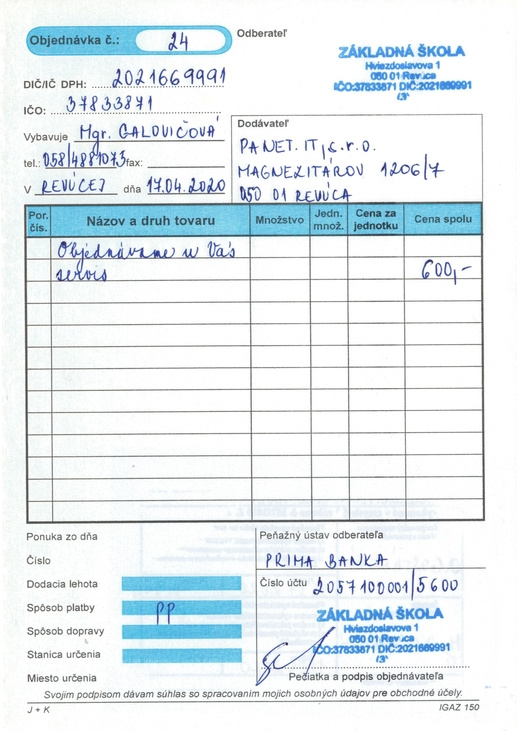 Objednávka č.: 24
Odberateľ
ZÁKLADNÁ ŠKOLA
Hviezdoslavova 1
050 01 Revúca
IČO:37833871 DIČ:2021669991
DIČ/IČ DPH: 2021669991
IČO: 37833871
Vybavuje Mgr. GALOVIČOVÁ
tel.: 058/4881073 fax:
V REVÚCEJ dňa 17.04.2020
Dodávateľ
PANET.IT, s.r.o.
MAGNEZITÁROV 1206/7
050 01 REVÚCA
Por. čís. Názov a druh tovaru Množstvo Jedn. množ. Cena za jednotku Cena spolu
Objednávame u Vás
servis 600,-
Ponuka zo dňa
Číslo
Dodacia lehota
Spôsob platby PP
Spôsob dopravy
Stanica určenia
Miesto určenia
Peňažný ústav odberateľa
PRIMA BANKA
Číslo účtu 2057100001/5600
ZÁKLADNÁ ŠKOLA
Hviezdoslavova 1
050 01 Revúca
IČO:37833871 DIČ:2021669991
Pečiatka a podpis objednávateľa
Svojim podpisom dávam súhlas so spracovaním mojich osobných údajov pre obchodné účely.
J + K
IGAZ 150